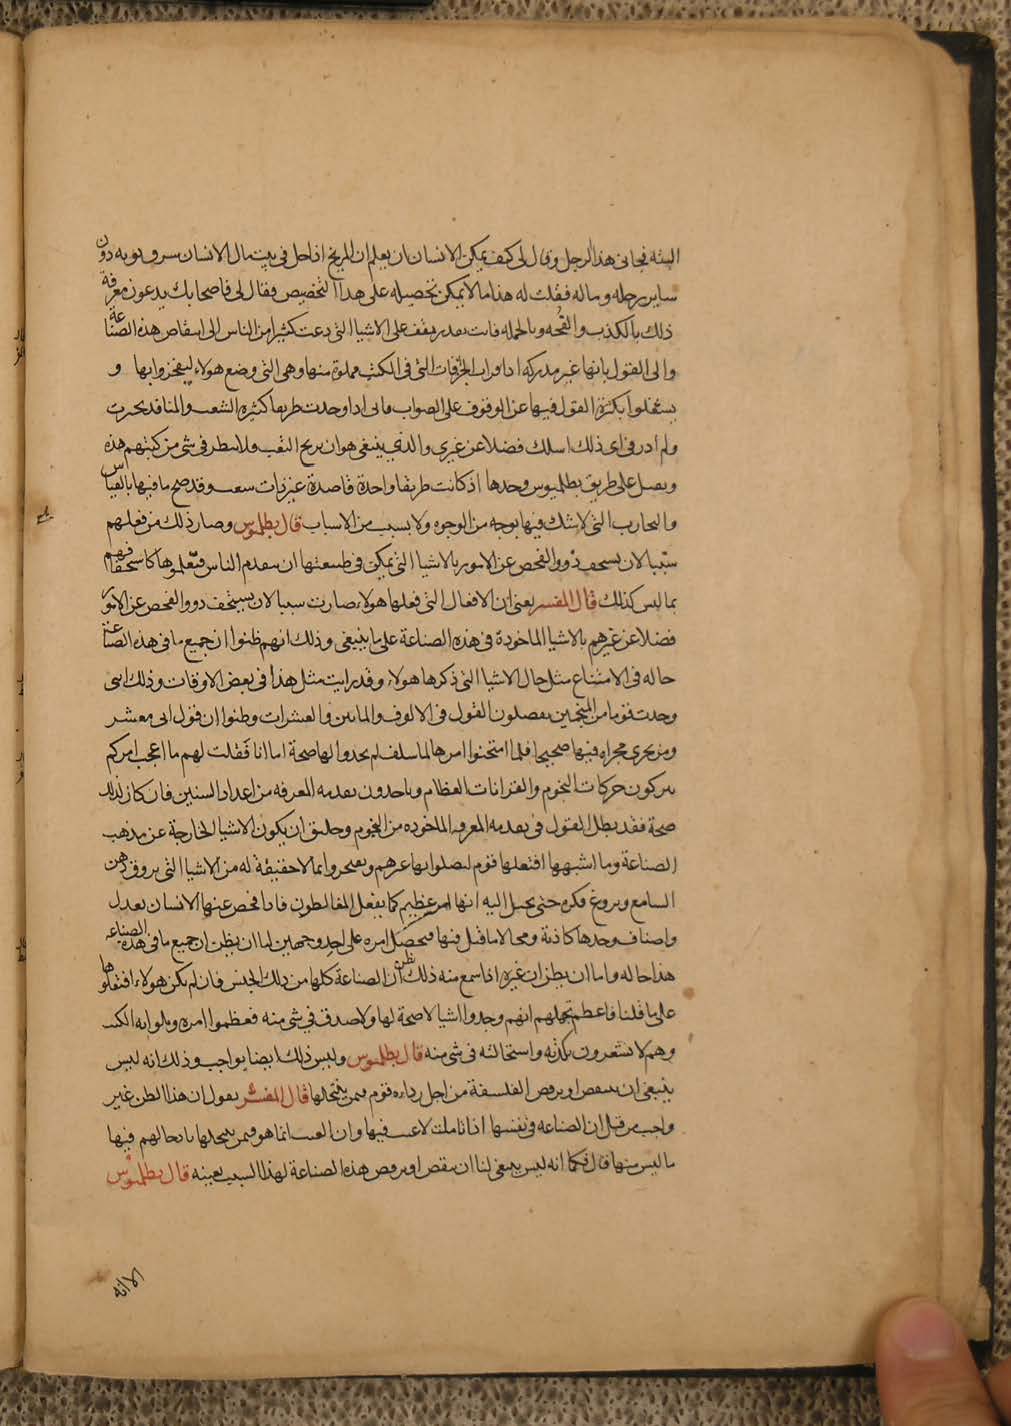 البتة فجانى هذا الرجل وقال لى كيف يمكن الانسان ان يعلم ان المريخ اذا حل فى بيت مال الانسان سرق ثوبه دون
ساير رحله وماله فقلت له هذا ما لا يمكن تحصيله على هذا التخصيص فقال لى فاصحابك يدعون معرفة
ذلك بالكذب والقحه وبالجمله فانت تقدر تقف على الاشيا التى دعت كثيرا من الناس الى انتقاص هذه الصناعة
والى القول بانها غير مدركه اذا قرات الخرافات التى فى الكتب مملوة منها وهى التى وضع هولاء ليفخروا بها و
يشغلوا بكثرة القول فيها عن الوقوف على الصواب فانى اذا وجدت طريقا كثيره الشعب والمنافذ تحيرت
ولم ادر فى اى ذلك اسلك فضلا عن غيرى والذى ينبغى هو ان يريح التعب ولا ينظر فى شى من كتبهم هذه
ويصل على طريق بطلميوس وحدها اذ كانت طريقا واحدة قاصدة غير ذات شعب وقد صح ما فيها بالقياس
والتجارب التى لا يشك فيها بوجه من الوجوه ولا بسبب من الاسباب قال بطلميوس وصار ذلك من فعلهم
سببا لان يستخف ذوو الفحص عن الامور بالاشيا التى يمكن فى طبيعتها ان يتقدم الناس فيعلموها كاستخفافهم
بما ليس كذلك قال المفسر يعنى ان الافعال التى فعلها هولاء صارت سببا لان يستخف ذوو الفحص عن الامور
فضلا عن غيرهم بالاشيا الماخوذة فى هذه الصناعة على ما ينبغى وذلك انهم ظنوا ان جميع ما فى هذه الصناعة
حاله فى الامتناع مثل حال الاشيا التى ذكرها هولاء وقد رايت مثل هذا فى بعض الاوقات وذلك انى
وجدت قوما من المنجمين يفصلون القول فى الالوف والمائين والعشرات وظنوا ان قول ابى معشر
ومن يجرى مجراه فيها صحيحا فلما امتحنوا امرها لما سلف لم يجدوا لها صحة اما انا فقلت لهم ما اعجب امركم
تتركون حركات النجوم والقرانات العظام وتاخذون تقدمه المعرفه من اعداد السنين فان كان لذلك
صحة فقد بطل القول فى تقدمه المعرفه الماخوذه من النجوم وخليق ان يكون الاشيا الخارجة عن مذهب
الصناعة وما اشبهها افتعلها قوم ليضلوا بها غيرهم ويفتخروا بما لا حقيقة له من الاشيا التى يروق ذهن
السامع ويروغ فكره حتى يخيل اليه انها امر عظيم كما يفعل المغالطون فاذا فحص عنها الانسان بعدل
وانصاف وجدها كاذبة ومحالا ما قيل فيها فيحصل امره على احد وجهين اما ان يظن ان جميع ما فى هذه الصناعة
هذا حاله واما ان يظن ان غيره اذا سمع منه ذلك ظن ان الصناعة كلها من ذلك الجنس فان لم يكن هولاء افتعلوها
على ما قلنا فاعظم تجهلهم انهم وجدوا اشيا لا صحة لها ولا صدق فى شى منه فعظموا امره وملوا به الكتب
وهم لا يشعرون بكذبه واستحالته فى شى منه قال بطلميوس وليس ذلك ايضا بواجب وذلك انه ليس
ينبغى ان ينتقص او يرفض الفلسفة من اجل رداءه قوم ممن ينتحلها قال المفسر يقول ان هذا الظن غير
واجب من قبل ان الصناعه فى نفسها اذا تاملت لا عيب فيها وان العيب انما هو فيمن ينتحلها بادخالهم فيها
ما ليس منها قال فكما انه ليس ينبغى لنا ان ينقص او يرفض هذه الصناعة لهذا السبب بعينه قال بطلميوس
الا انه